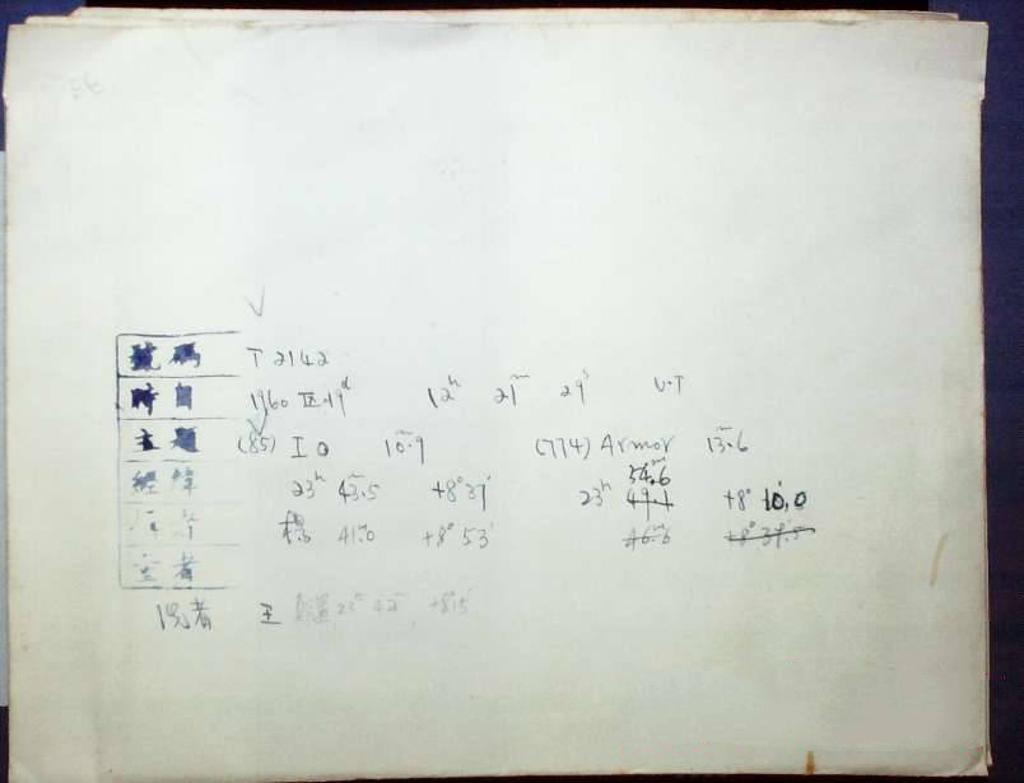 號碼 T 2142
時日 1960 IX 19d 12h 21m 29s U.T
主題 (85) Io 10m.9 (774) Armor 13m.6
54m.6
經緯 23h 43m.5 +8°37' 23h 49.1 +8° 10.0
41m.0 +8°53' 46m.6 +8°39'.5
者
者 王 23h 42m +8°15'